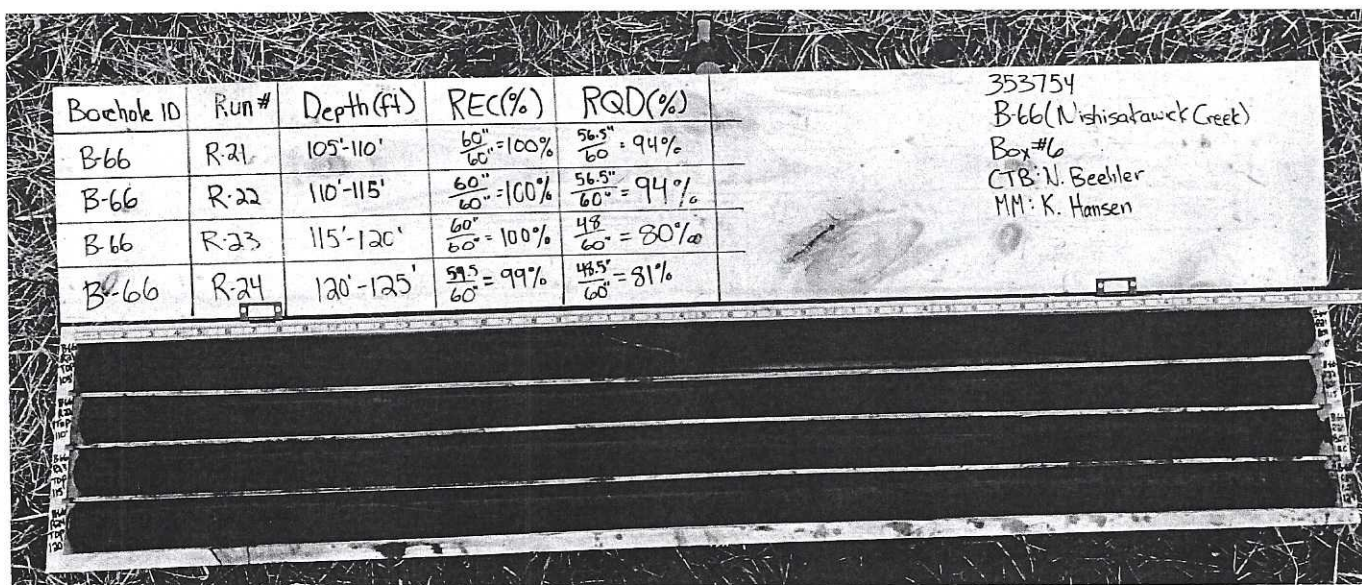 Borehole ID Run# Depth(ft) REC(%) RQD(%)
B-66 R-21 105'-110' 60"/60" = 100% 56.5"/60 = 94%
B-66 R-22 110'-115' 60"/60" = 100% 56.5"/60" = 94%
B-66 R-23 115'-120' 60"/60" = 100% 48/60" = 80%
B-66 R-24 120'-125' 59.5/60" = 99% 48.5"/60" = 81%
353754
B-66(Nishisakawick Creek)
Box #6
CTB: N. Beehler
MM: K. Hansen
TOP
105
TOP
110
TOP
115
TOP
120